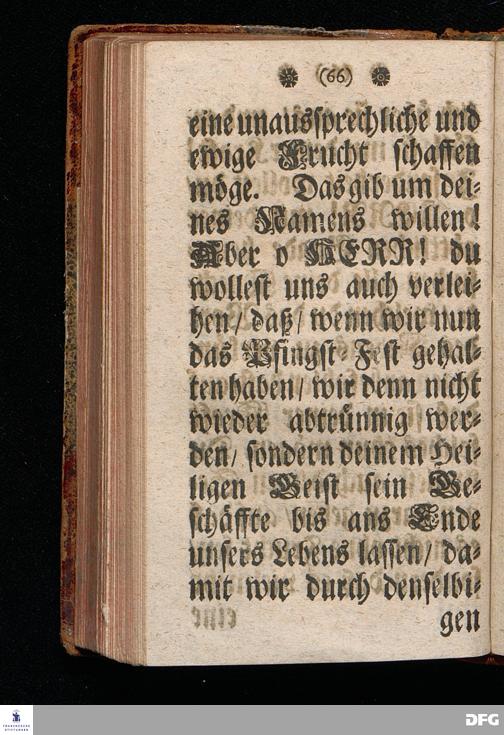 (66)
eine unaussprechliche und
ewige Frucht schaffen
möge. Das gib um dei-
nes Namens willen!
Aber o HERR! du
wollest uns auch verlei-
hen/ daß/ wenn wir nun
das Pfingst-Fest gehal-
ten haben/ wir denn nicht
wieder abtrünnig wer-
den/ sondern deinem Hei-
ligen Geist sein Ge-
schäffte bis ans Ende
unsers Lebens lassen/ da-
mit wir durch denselbi-
gen
FRANCKESCHE
STIFTUNGEN
DFG